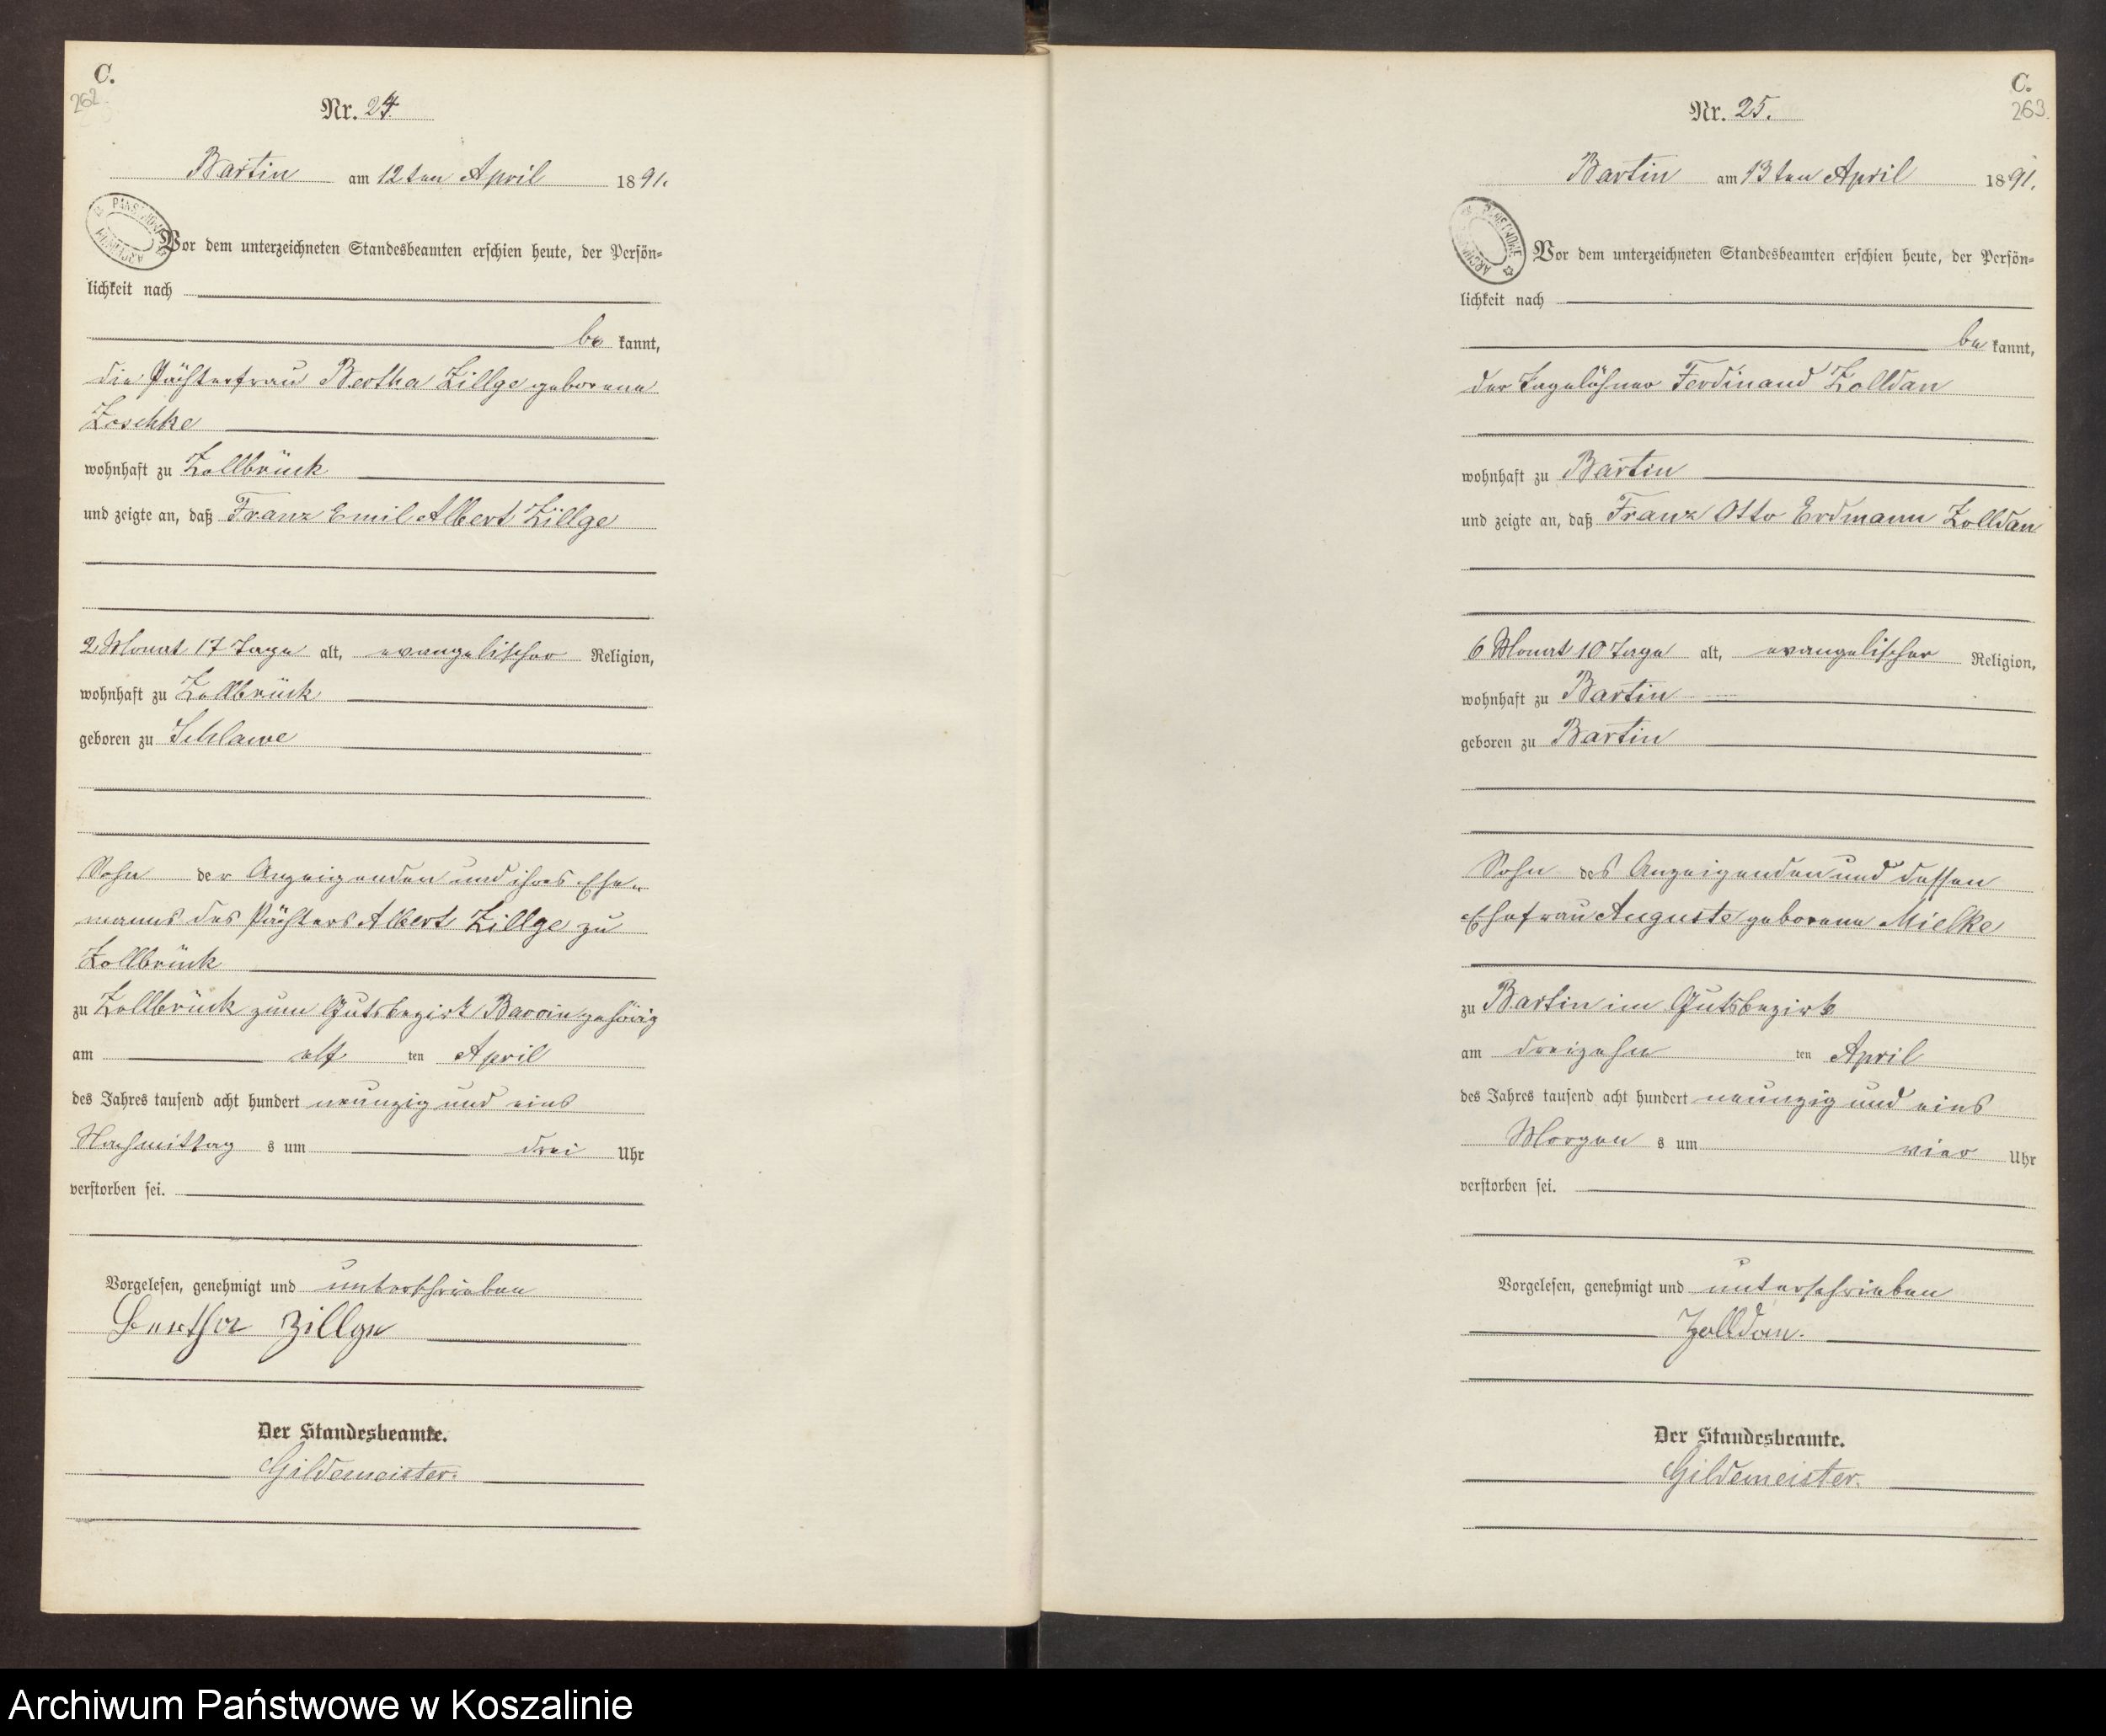 C.
262
Nr. 24.
Bartin am 12ten April 1891.
Vor dem unterzeichneten Standesbeamten erschien heute, der Persön-
lichkeit nach
be kannt,
die Pächterfrau Bertha Zillge geborene
Zoschke
wohnhaft zu Zollbrück
und zeigte an, daß Franz Emil Albert Zillge
2 Monat 17 Tage alt, evangelischer Religion,
wohnhaft zu Zollbrück
geboren zu Schlawe
Sohn der Anzeigenden und ihres Ehe-
manns des Pächters Albert Zillge zu
Zollbrück
zu Zollbrück zum Gutsbezirk Barvin gehörig
am elf ten April
des Jahres tausend acht hundert neunzig und eins
Nachmittag s um drei Uhr
verstorben sei.
Vorgelesen, genehmigt und unterschrieben
Bertha Zillge
Der Standesbeamte.
Gildemeister.
C.
263.
Nr. 25.
Bartin am 13ten April 1891.
PAŃSTWOWE ARCHIWUM
Vor dem unterzeichneten Standesbeamten erschien heute, der Persön-
lichkeit nach
be kannt,
der Tagelöhner Ferdinand Zolldan
wohnhaft zu Bartin
und zeigte an, daß Franz Otto Erdmann Zolldan
6 Monat 10 Tage alt, evangelischer Religion,
wohnhaft zu Bartin
geboren zu Bartin
Sohn des Anzeigenden und dessen
Ehefrau Auguste geborene Mielke
zu Bartin im Gutsbezirk
am dreizehn ten April
des Jahres tausend acht hundert neunzig und eins
Morgen s um vier Uhr
verstorben sei.
Vorgelesen, genehmigt und unterschrieben
Zolldan.
Der Standesbeamte.
Gildemeister.
Archiwum Państwowe w Koszalinie